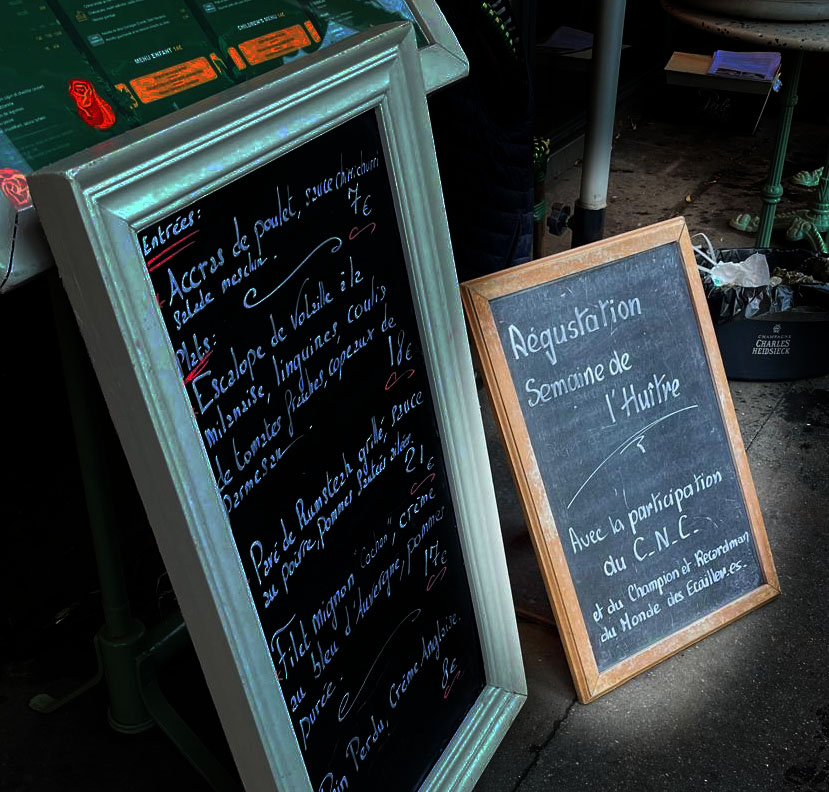 CHILDREN'S MENU 14€
MENU ENFANT 14€
Entrées:
Accras de poulet, sauce chimichurri
Salade mesclun.
7€
Plats:
Escalope de Volaille à la
milanaise, linguines, coulis
de tomates fraîches, copeaux de
Parmesan.
18€
Pavé de Rumsteak grillé, sauce
au poivre, pommes sautées
21€
Filet mignon "Cochon", crème
au bleu d'Auvergne, pommes
purée.
17€
Pain Perdu, Crème Anglaise.
8€
Dégustation
Semaine de
l'Huître
Avec la participation
du C_N_C_
et du Champion et Recordman
du Monde des Ecaillers.es_
CHAMPAGNE
CHARLES
HEIDSIECK